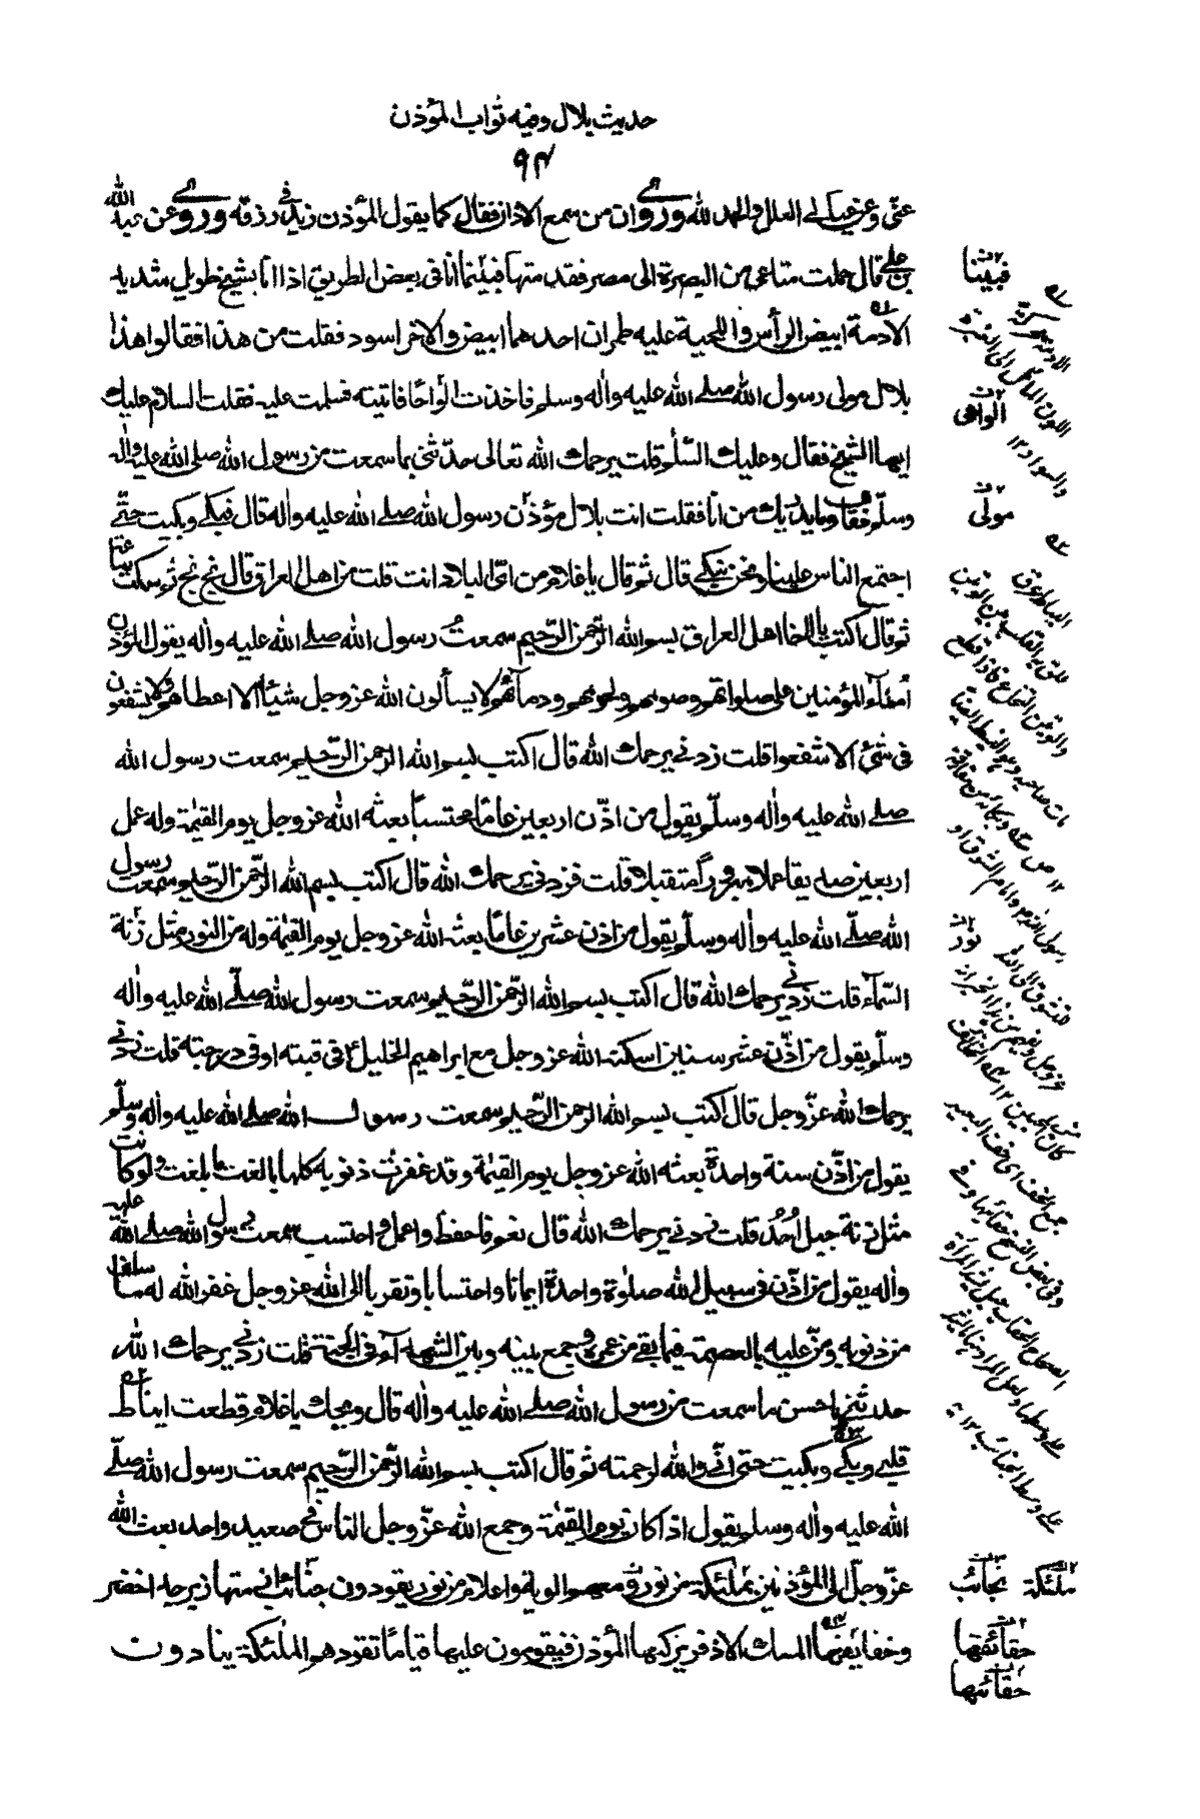 حديث بلال وفيه ثواب المؤذن
٩٤
عمّى وعن عيالى العلل والحمد لله وروى ان من سمع الاذان فقال كما يقول المؤذن زيد فى رزقه وروى عن عبد الله
بن على قال حملت متاعى من البصرة الى مصر فقدمتها فبينما انا فى بعض الطريق اذا انا بشيخ طويل شديد
الادمة ابيض الرأس واللحية عليه طمران احدهما ابيض والاخر اسود فقلت من هذا فقالوا هذا
بلال مولى رسول الله صلى الله عليه واٰله وسلم فاخذت الواحًا فاتيته فسلمت عليه فقلت السلام عليك
ايها الشيخ فقال وعليك السّلٰم قلت يرحمك الله تعالى حدّثنى بما سمعت من رسول الله صلى الله عليه واٰله
وسلّم فقال وما يدريك من انا فقلت انت بلال مؤذن رسول الله صلى الله عليه واٰله قال فبكى وبكيت حتّى
اجتمع الناس علينا ونحن نبكى قال ثم قال يا غلام من اىّ البلاد انت قلت من اهل العراق قال بخ بخ ثم سكت ساعة
ثم قال اكتب يا اخا اهل العراق بسم الله الرّحمن الرّحيم سمعت رسول الله صلى الله عليه واٰله يقول المؤذنون
أمناء المؤمنين على صلواتهم وصومهم ولحومهم ودمآئهم لا يسألون الله عز وجل شيئا الا اعطاهم ولا يشفعون
فى شئ الا شفعوا قلت زدنى يرحمك الله قال اكتب بسم الله الرحمن الرّحيم سمعت رسول الله
صلى الله عليه واٰله وسلّم يقول من اذّن اربعين عامًا محتسبًا بعثه الله عز وجل يوم القيٰمة وله عمل
اربعين صديقا عملا مبرورًا متقبلا قلت فزدنى يرحمك الله قال اكتب بسم الله الرّحمن الرّحيم سمعت رسول
الله صلّى الله عليه واٰله وسلّم يقول من اذن عشرين عامًا بعثه الله عز وجل يوم القيٰمة وله من النور مثل زنة
السّمآء قلت زدنى يرحمك الله قال اكتب بسم الله الرّحمن الرّحيم سمعت رسول الله صلّى الله عليه واٰله
وسلّم يقول من اذّن عشر سنين اسكنه الله عز وجل مع ابراهيم الخليل ع فى قبته او فى درجته قلت زدنى
يرحمك الله عزّ وجل قال اكتب بسم الله الرحمن الرّحيم سمعت رسول الله صلى الله عليه واٰله وسلّم
يقول من اذّن سنة واحدة بعثه الله عز وجل يوم القيٰمة وقد غفرت ذنوبه كلها بالغت ما بلغت ولو كانت
مثل زنة جبل اُحُد قلت زدنى يرحمك الله قال نعم فاحفظ واعمل واحتسب سمعت رسول الله صلى الله عليه
واٰله يقول من اذّن فى سبيل الله صلوٰة واحدة ايمانا واحتسابا وتقربا الى الله عز وجل غفر الله له ما سلف
من ذنوبه ومنّ عليه بالعصمة فيما بقى من عمره وجمع بينه وبين الشهدآء فى الجنة قلت زدنى يرحمك الله
حدثنى باحسن ما سمعت من رسول الله صلى الله عليه واٰله قال ويحك يا غلام قطعت انياط
قلبى وبكى وبكيت حتى انّى والله لرحمته ثم قال اكتب بسم الله الرّحمن الرّحيم سمعت رسول الله صلّى
الله عليه واٰله وسلم يقول اذا كان يوم القيٰمة وجمع الله عزّ وجل الناس فى صعيد واحد بعث الله
عزّ وجلّ الى المؤذنين بملٰئكة من نور ومعهم الوية واعلام من نور يقودون جنائب ازمتها زبرجد اخضر
وخفايفها المسك الاذفر يركبها المؤذنون فيقومون عليها قيامًا تقودهم الملٰئكة ينادون
فبينا
الواحى
مولى
نور
ملٰئكة نجائب
حقائفها
حقائبها